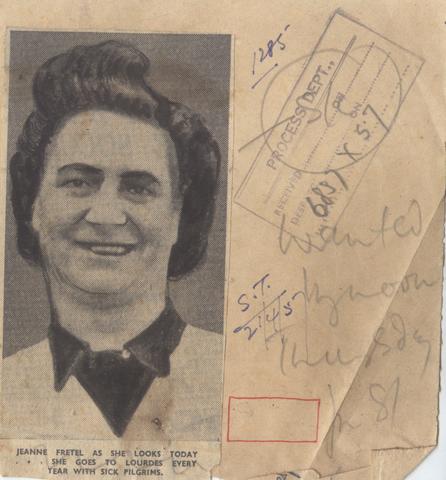 1285
PROCESS DEPT.,
RECEIVED
ON
ON
6837 X 5.7
S.T.
2/4/5
Wanted
by noon
Thursday
JEANNE FRETEL AS SHE LOOKS TODAY
. . . SHE GOES TO LOURDES EVERY
YEAR WITH SICK PILGRIMS.